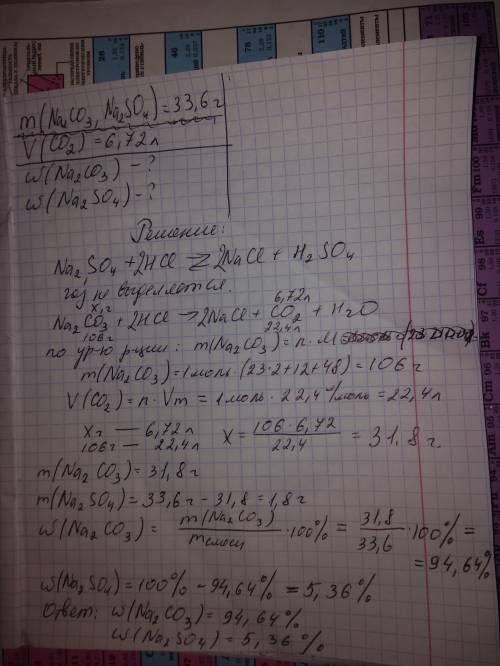 m(Na₂CO₃, Na₂SO₄) = 33,6 г
V(CO₂) = 6,72 л
ω(Na₂CO₃) - ?
ω(Na₂SO₄) - ?
Решение:
Na₂SO₄ + 2HCl ⇄ 2NaCl + H₂SO₄
газ не выделяется.
x г 6,72 л
Na₂CO₃ + 2HCl → 2NaCl + CO₂ + H₂O
106 г 22,4 л
по ур-ю р-ции: m(Na₂CO₃) = n · M
m(Na₂CO₃) = 1 моль · (23·2+12+48) = 106 г
V(CO₂) = n · Vm = 1 моль · 22,4 л/моль = 22,4 л
x г — 6,72 л x = 106 · 6,72 / 22,4 = 31,8 г
106 г — 22,4 л
m(Na₂CO₃) = 31,8 г
m(Na₂SO₄) = 33,6 г - 31,8 = 1,8 г
ω(Na₂CO₃) = m(Na₂CO₃) / m смеси · 100% = 31,8 / 33,6 · 100% =
= 94,64%
ω(Na₂SO₄) = 100% - 94,64% = 5,36%
Ответ: ω(Na₂CO₃) = 94,64%
ω(Na₂SO₄) = 5,36%
28
46
78
110
Fm 100
Es 99
Cf 98
Cm 96